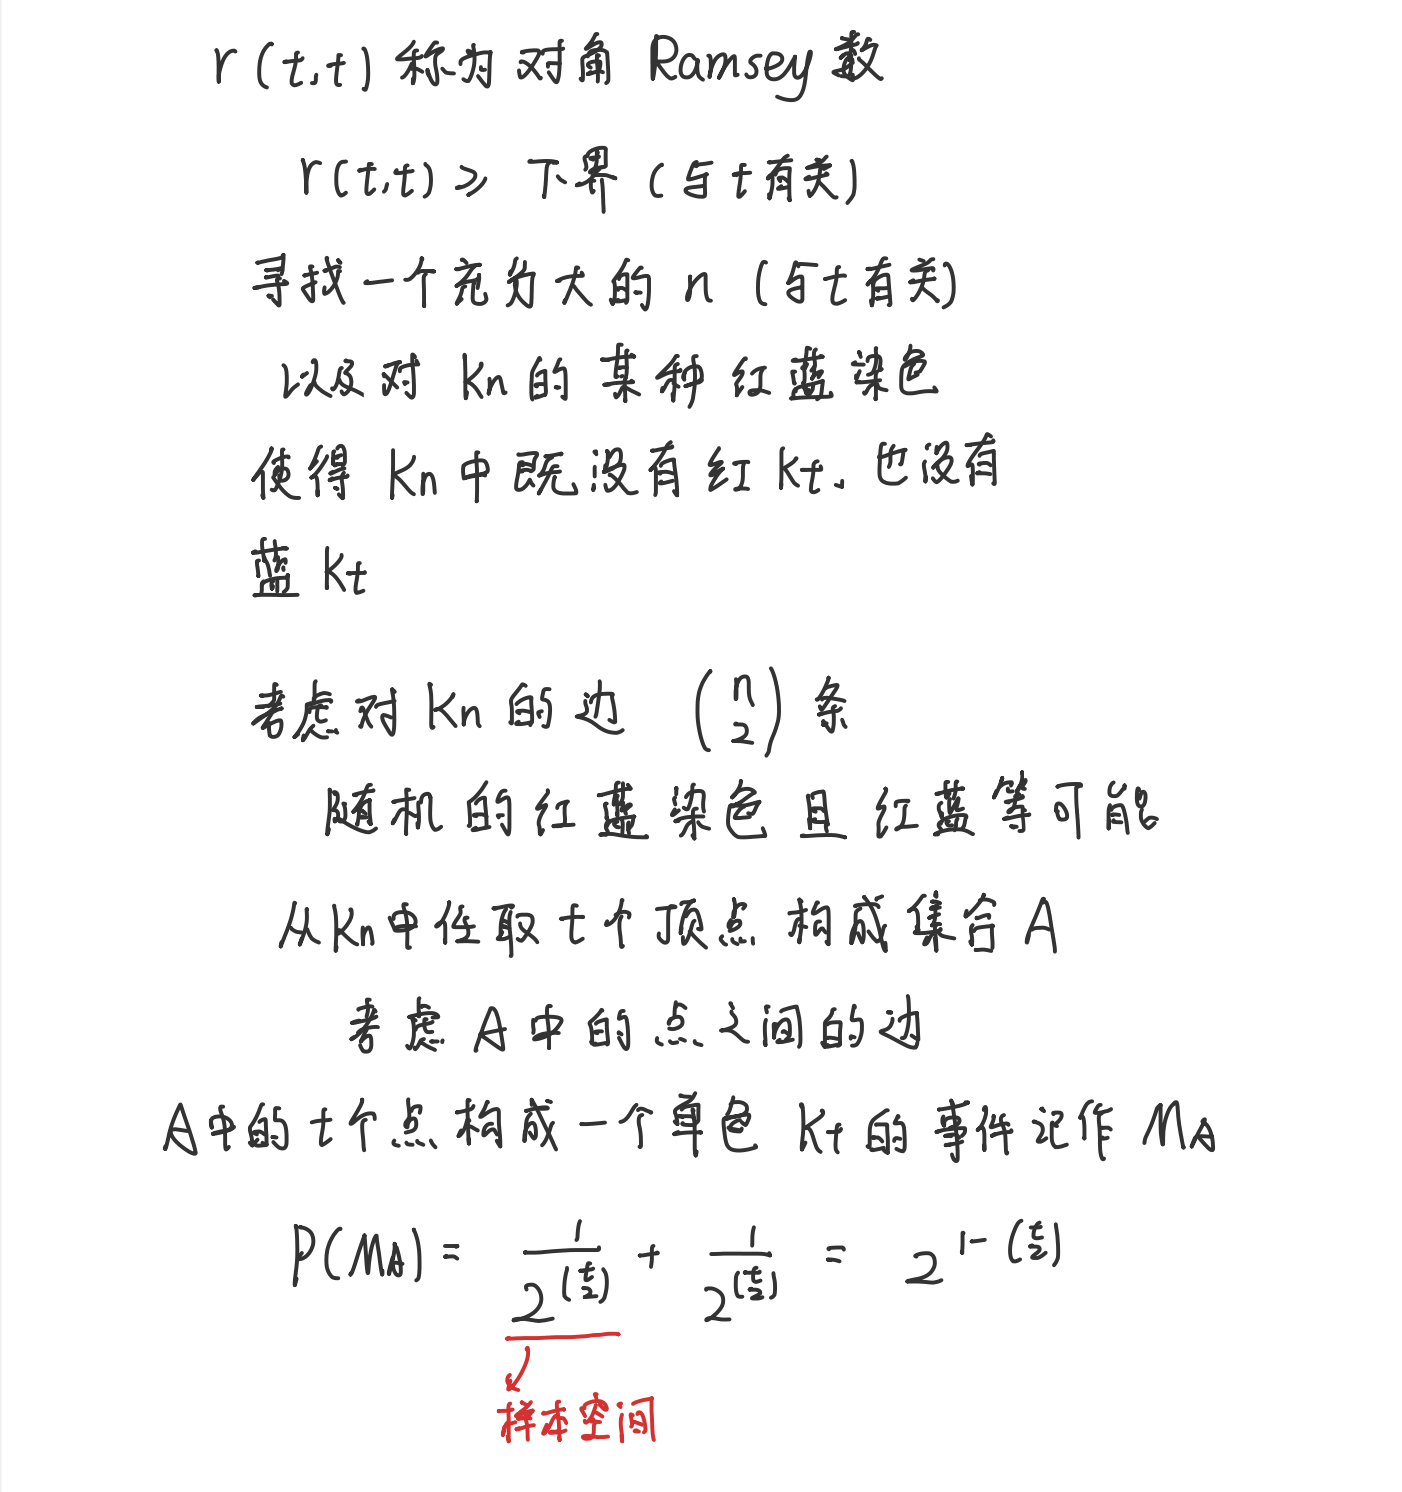 r(t,t) 称为对角 Ramsey 数
r(t,t) ≥ 下界 (与 t 有关)
寻找一个充分大的 n (与 t 有关)
以及对 Kn 的 某种 红蓝染色
使得 Kn 中既没有红 Kt, 也没有
蓝 Kt
考虑对 Kn 的边 (n 2) 条
随机的红蓝染色且红蓝等可能
从 Kn 中任取 t 个顶点 构成集合 A
考虑 A 中的点之间的边
A 中的 t 个点构成一个单色 Kt 的事件记作 M_A
P(M_A) = 1/2^(t 2) + 1/2^(t 2) = 2^{1-(t 2)}
样本空间